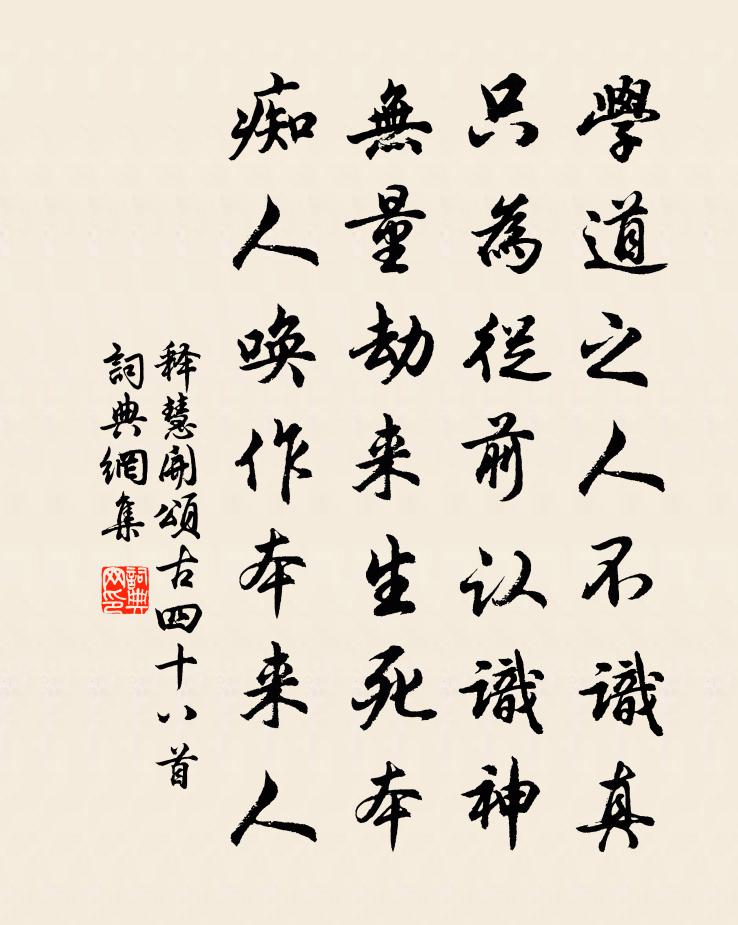 學道之人不識真
只為從前认識神
無量劫来生死本
痴人唤作本来人
释慧開頌古四十八首
詞典網集
詞典网印